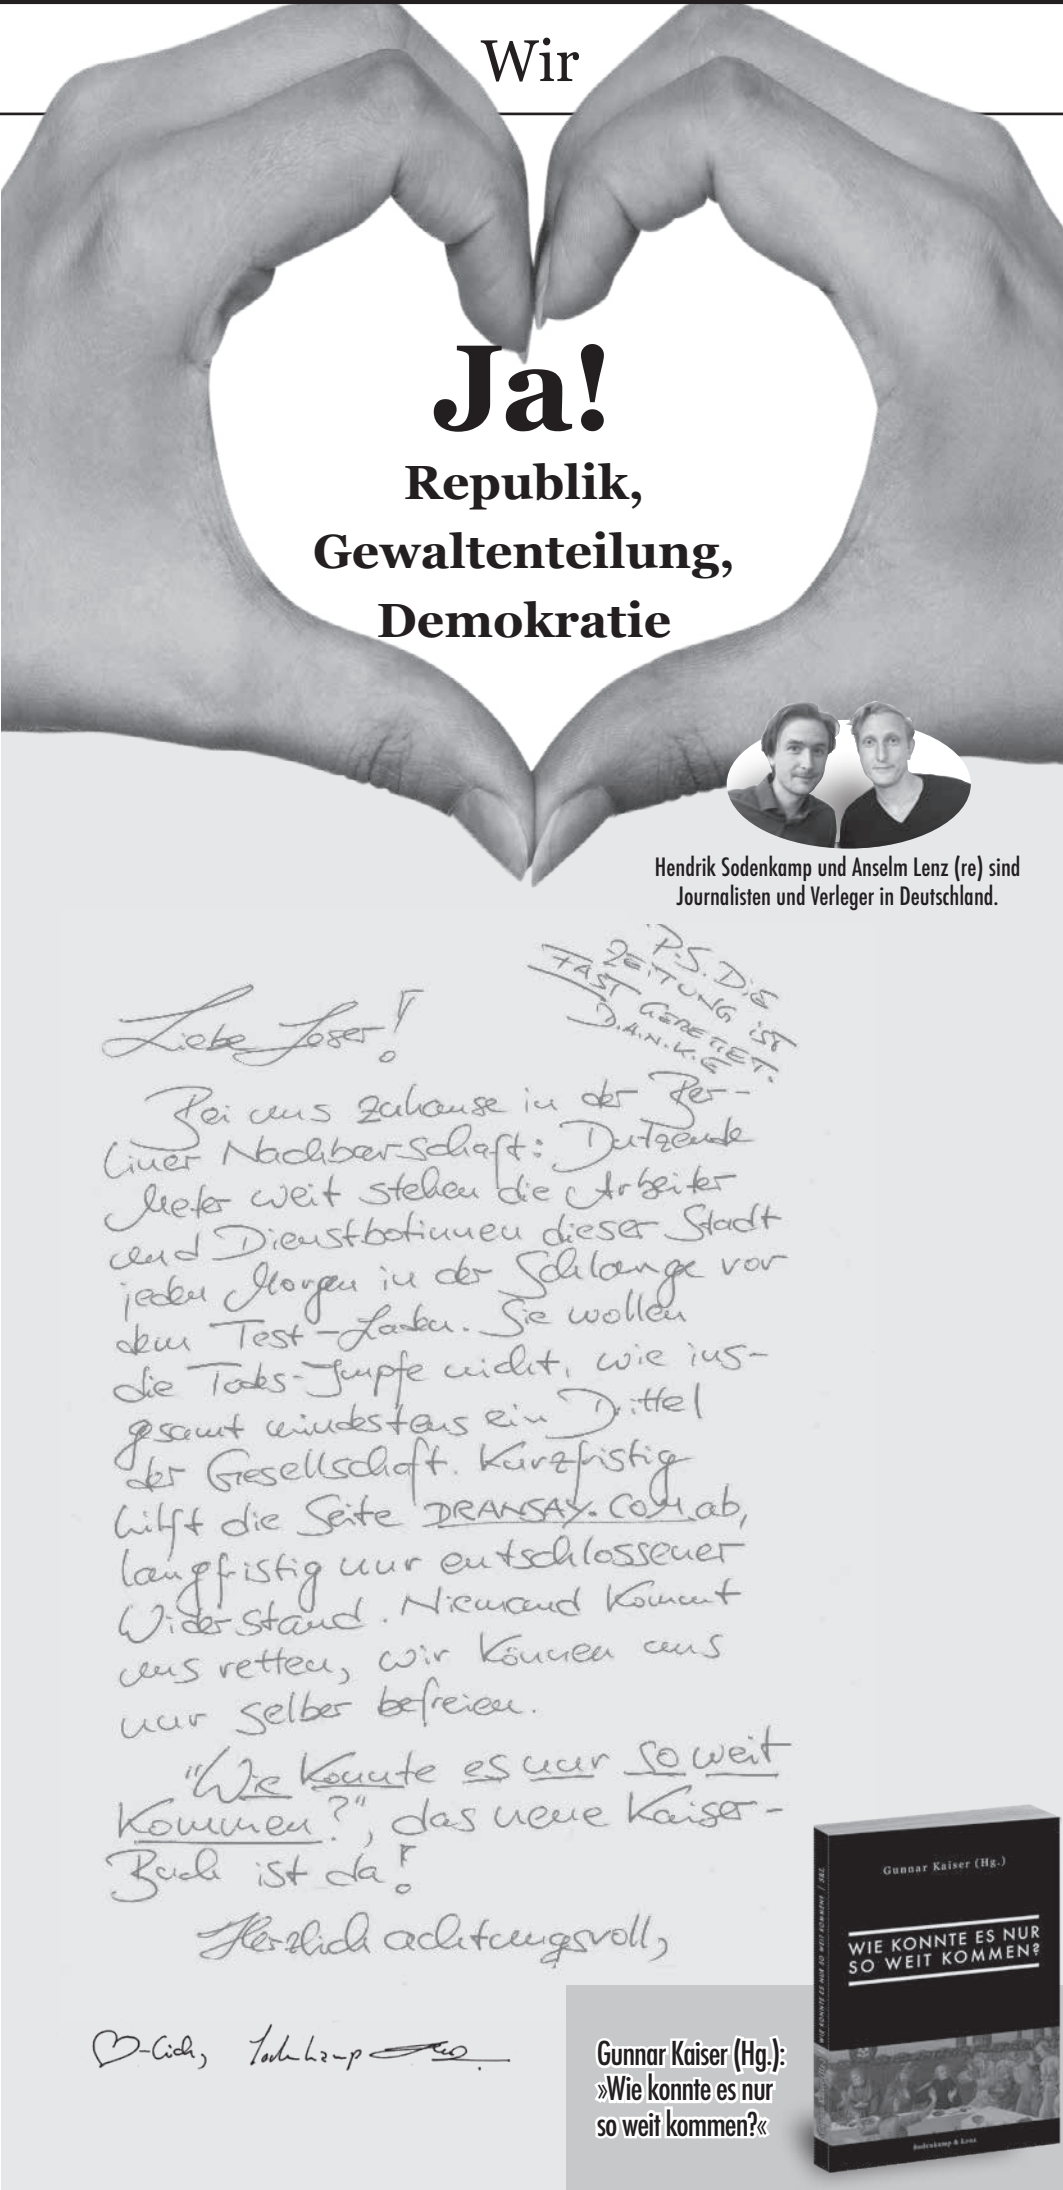 Wir
Ja!
Republik,
Gewaltenteilung,
Demokratie
Hendrik Sodenkamp und Anselm Lenz (re) sind
Journalisten und Verleger in Deutschland.
P.S. DiE
ZEiTUNG iST
FAST GERETTET.
D.A.N.K.E
Liebe Leser!
Bei uns zuhause in der Ber-
liner Nachbarschaft: Dutzende
Meter weit stehen die Arbeiter
und Dienstbotinnen dieser Stadt
jeden Morgen in der Schlange vor
dem Test-Laden. Sie wollen
die Todes-Impfe nicht, wie ins-
gesamt mindestens ein Drittel
der Gesellschaft. Kurzfristig
hilft die Seite DRANSAY.COM ab,
langfristig nur entschlossener
Widerstand. Niemand kommt
uns retten, wir können uns
nur selber befreien.
"Wie konnte es nur so weit
kommen?", das neue Kaiser-
Buch ist da!
Herzlich achtungsvoll,
♡-lich, Sodenkamp
Gunnar Kaiser (Hg.)
WIE KONNTE ES NUR
SO WEIT KOMMEN?
WIE KONNTE ES NUR SO WEIT KOMMEN / S&L
Sodenkamp & Lenz
Gunnar Kaiser (Hg.):
»Wie konnte es nur
so weit kommen?«